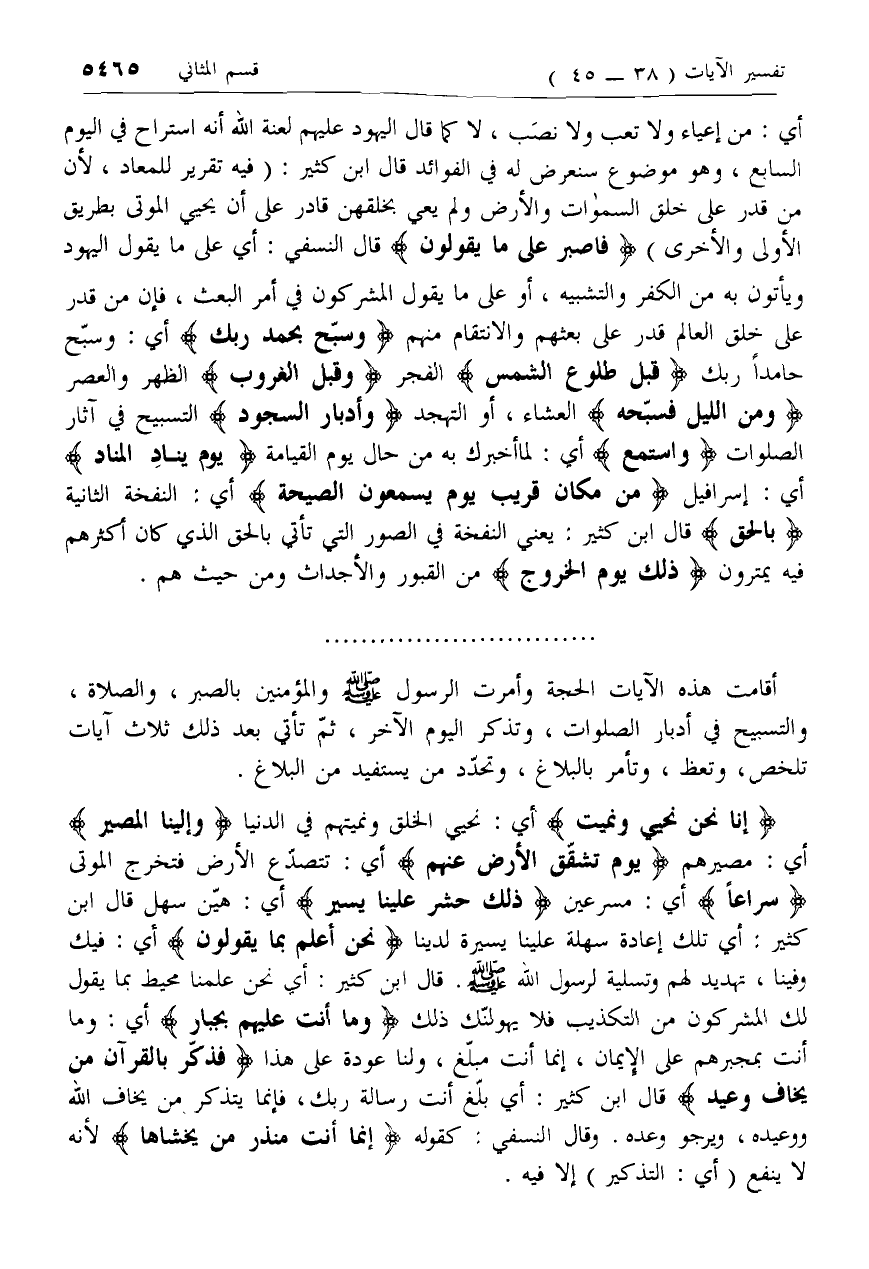 تفسير الآيات ( ٣٨ ــ ٤٥ ) قسم المثاني ٥٤٦٥
أي : من إعياء ولا تعب ولا نصَب ، لا كما قال اليهود عليهم لعنة الله أنه استراح في اليوم
السابع ، وهو موضوع سنعرض له في الفوائد قال ابن كثير : ( فيه تقرير للمعاد ، لأن
من قدر على خلق السمٰوات والأرض ولم يعي بخلقهن قادر على أن يحيي الموتى بطريق
الأولى والأحرى ) ﴿ فاصبر على ما يقولون ﴾ قال النسفي : أي على ما يقول اليهود
ويأتون به من الكفر والتشبيه ، أو على ما يقول المشركون في أمر البعث ، فإن من قدر
على خلق العالم قدر على بعثهم والانتقام منهم ﴿ وسبّح بحمد ربك ﴾ أي : وسبّح
حامداً ربك ﴿ قبل طلوع الشمس ﴾ الفجر ﴿ وقبل الغروب ﴾ الظهر والعصر
﴿ ومن الليل فسبّحه ﴾ العشاء ، أو التهجد ﴿ وأدبار السجود ﴾ التسبيح في آثار
الصلوات ﴿ واستمع ﴾ أي : لماأخبرك به من حال يوم القيامة ﴿ يوم ينادِ المناد ﴾
أي : إسرافيل ﴿ من مكان قريب يوم يسمعون الصيحة ﴾ أي : النفخة الثانية
﴿ بالحق ﴾ قال ابن كثير : يعني النفخة في الصور التي تأتي بالحق الذي كان أكثرهم
فيه يمترون ﴿ ذلك يوم الخروج ﴾ من القبور والأجداث ومن حيث هم .
..............................
أقامت هذه الآيات الحجة وأمرت الرسول ﷺ والمؤمنين بالصبر ، والصلاة ،
والتسبيح في أدبار الصلوات ، وتذكر اليوم الآخر ، ثمّ تأتي بعد ذلك ثلاث آيات
تلخص، وتعظ ، وتأمر بالبلاغ ، وتحدّد من يستفيد من البلاغ .
﴿ إنا نحن نحيي ونميت ﴾ أي : نحيي الخلق ونميتهم في الدنيا ﴿ وإلينا المصير ﴾
أي : مصيرهم ﴿ يوم تشقّق الأرض عنهم ﴾ أي : تتصدّع الأرض فتخرج الموتى
﴿ سراعاً ﴾ أي : مسرعين ﴿ ذلك حشر علينا يسير ﴾ أي : هيّن سهل قال ابن
كثير : أي تلك إعادة سهلة علينا يسيرة لدينا ﴿ نحن أعلم بما يقولون ﴾ أي : فيك
وفينا ، تهديد لهم وتسلية لرسول الله ﷺ . قال ابن كثير : أي نحن علمنا محيط بما يقول
لك المشركون من التكذيب فلا يهولنّك ذلك ﴿ وما أنت عليهم بجبار ﴾ أي : وما
أنت بمجبرهم على الإيمان ، إنما أنت مبلّغ ، ولنا عودة على هذا ﴿ فذكّر بالقرآن من
يخاف وعيد ﴾ قال ابن كثير : أي بلّغ أنت رسالة ربك، فإنما يتذكر من يخاف الله
ووعيده ، ويرجو وعده . وقال النسفي : كقوله ﴿ إنما أنت منذر من يخشاها ﴾ لأنه
لا ينفع ( أي : التذكير ) إلا فيه .